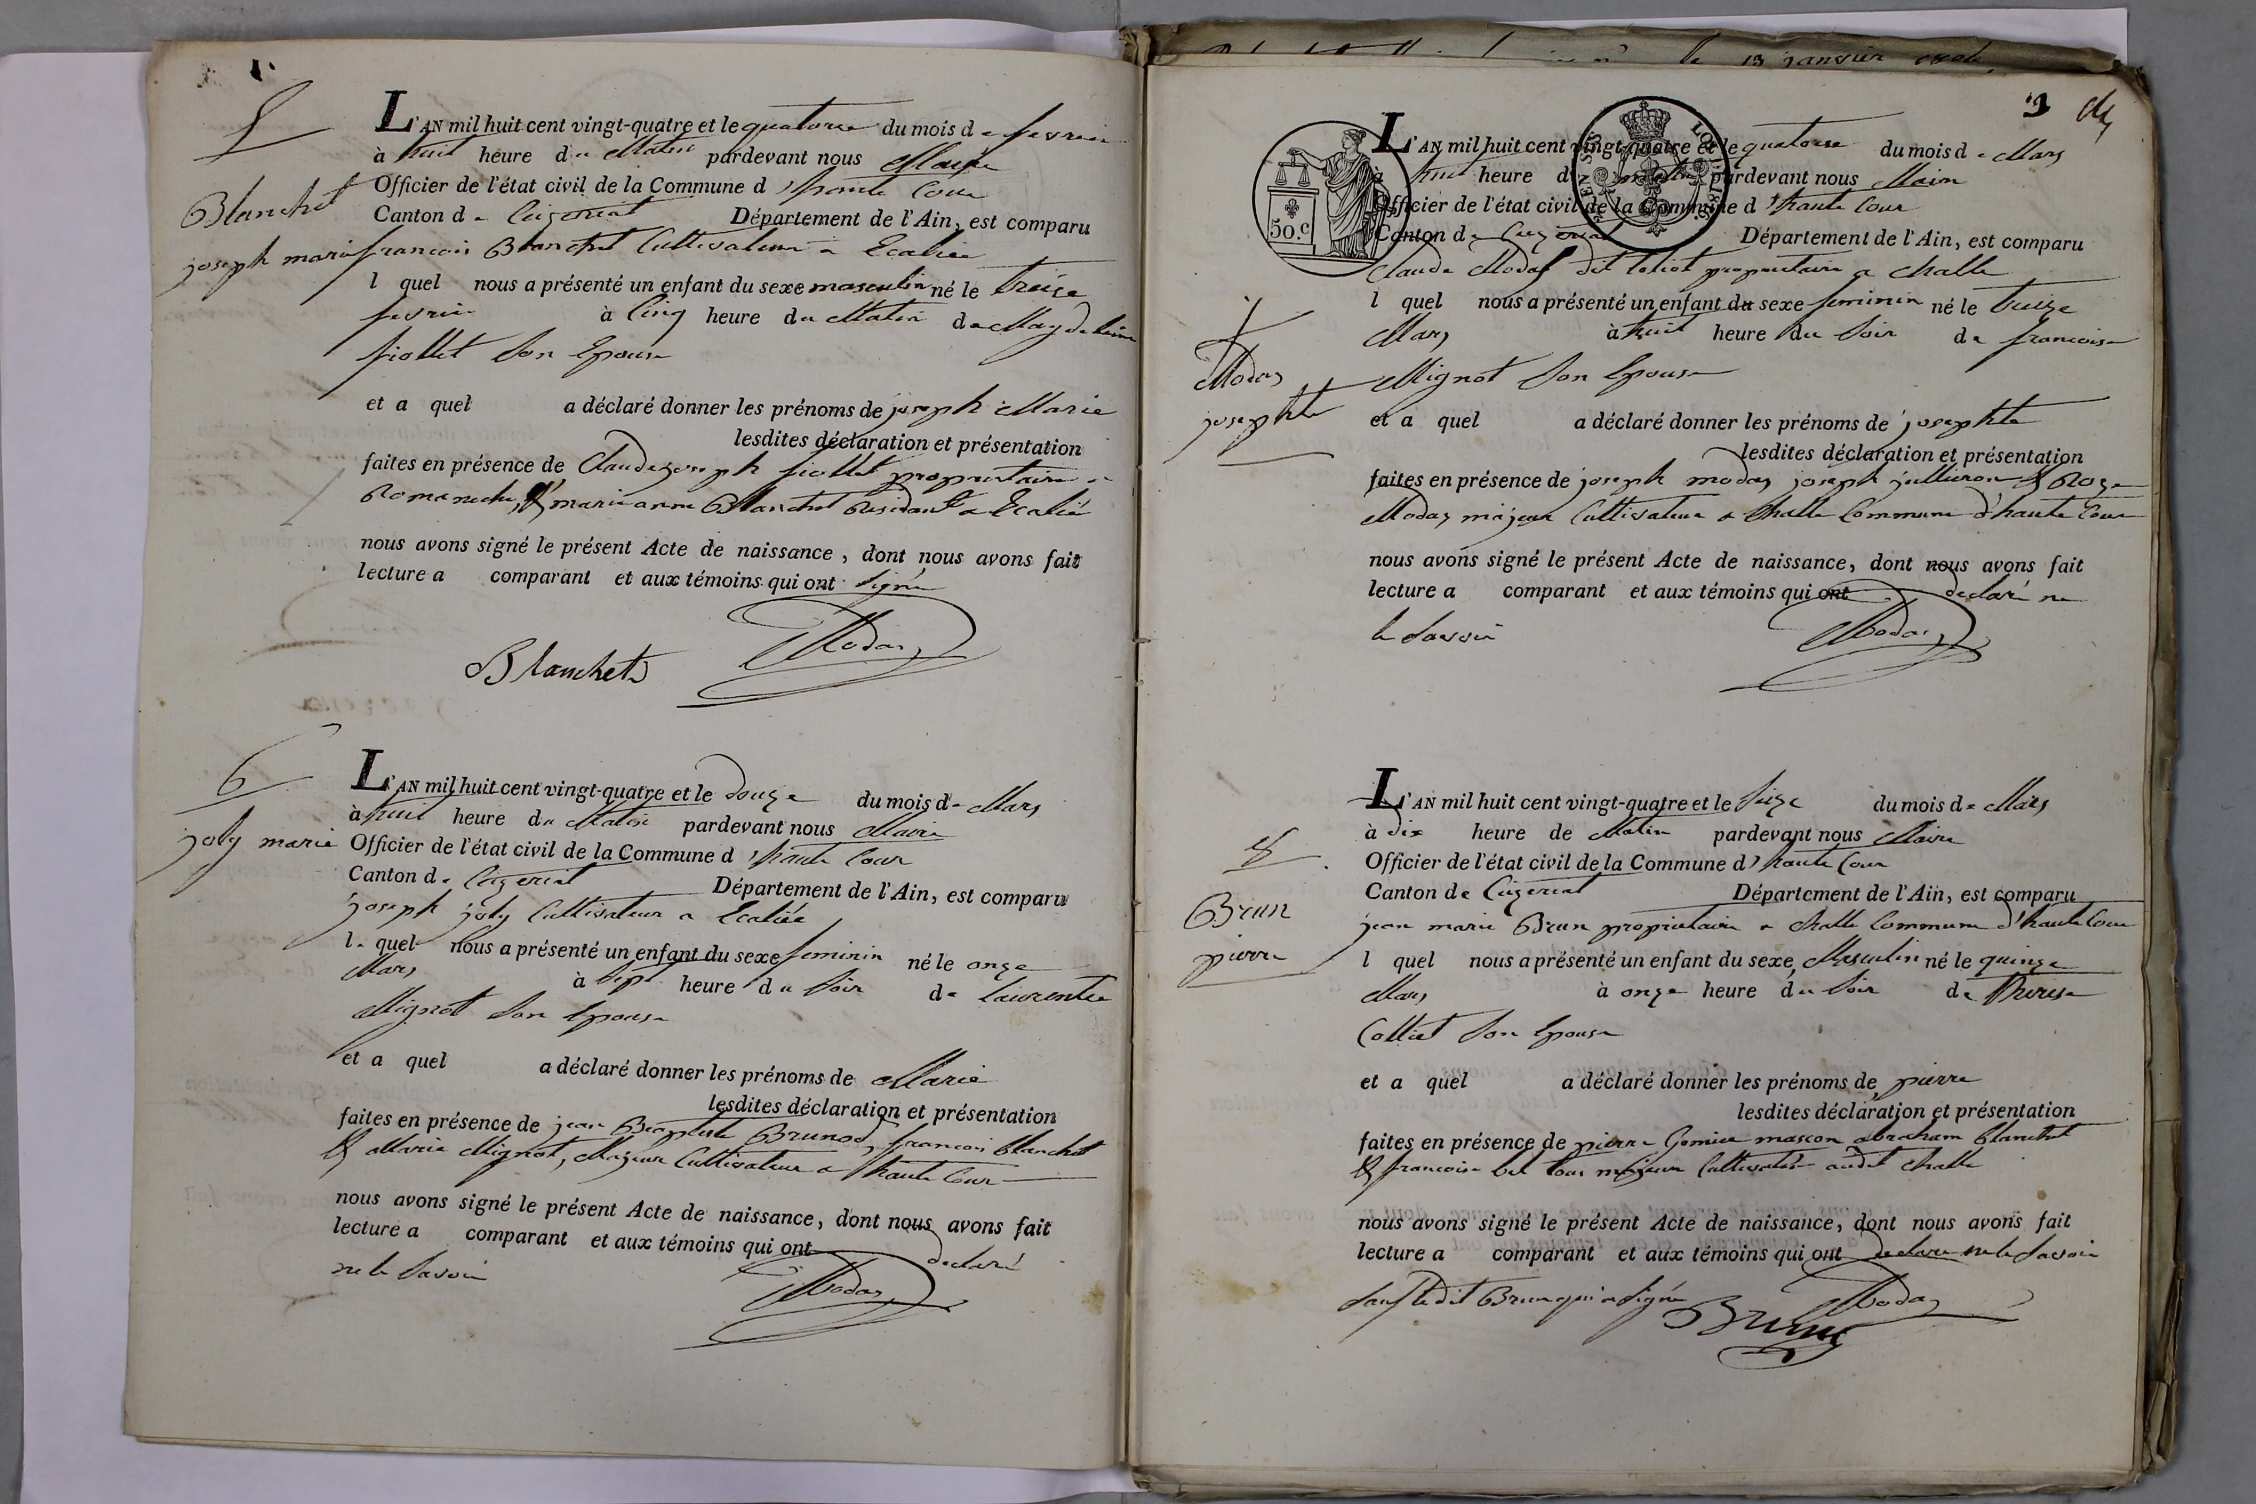 5
Blanchet
joseph marie
L'AN mil huit cent vingt-quatre et le quatorze du mois de fevrier
à huit heure du Matin pardevant nous Maire
Officier de l'état civil de la Commune d'haute Cour
Canton de Ceizeriat Département de l'Ain, est comparu
francois Blanchet Cultivateur a
l quel nous a présenté un enfant du sexe masculin né le treize
fevrier à Cinq heure du Matin de Magdelaine
fiollet Son Epouse
et a quel a déclaré donner les prénoms de joseph Marie
lesdites déclaration et présentation
faites en présence de Claude joseph fiollet proprietaire a
Romaneche, & marie anne Blanchet Residant a
nous avons signé le présent Acte de naissance, dont nous avons fait
lecture a comparant et aux témoins qui ont Signé
Blanchet Modas
6
joly marie
L'AN mil huit cent vingt-quatre et le douze du mois de Mars
à huit heure du Matin pardevant nous Maire
Officier de l'état civil de la Commune d'haute Cour
Canton de Ceizeriat Département de l'Ain, est comparu
joseph joly Cultivateur a
le quel nous a présenté un enfant du sexe feminin né le onze
Mars à Sept heure du Soir de Laurentie
Mignot Son Epouse
et a quel a déclaré donner les prénoms de Marie
lesdites déclaration et présentation
faites en présence de jean Baptiste Brunod, francois Blanchet
& Marie Mignot, Majeur Cultivateur a haute Cour
nous avons signé le présent Acte de naissance, dont nous avons fait
lecture a comparant et aux témoins qui ont declaré
ne le Savoir
Modas
le 13 janvier
3
50.C
LOI 1816
7
Modas
josephte
L'AN mil huit cent vingt-quatre et le quatorze du mois de Mars
à huit heure du matin pardevant nous Maire
Officier de l'état civil de la Commune d'haute Cour
Canton de Ceizeriat Département de l'Ain, est comparu
Claude Modas dit proprietaire a Challe
l quel nous a présenté un enfant du sexe feminin né le treize
Mars à huit heure du Soir de francoise
Mignot Son Epouse
et a quel a déclaré donner les prénoms de josephte
lesdites déclaration et présentation
faites en présence de joseph modas joseph jullieron & Roze
Modas majeur Cultivateur a Challe Commune d'haute Cour
nous avons signé le présent Acte de naissance, dont nous avons fait
lecture a comparant et aux témoins qui ont declaré ne
le Savoir
Modas
8
Brun
pierre
L'AN mil huit cent vingt-quatre et le Seize du mois de Mars
à dix heure de Matin pardevant nous Maire
Officier de l'état civil de la Commune d'haute Cour
Canton de Ceizeriat Département de l'Ain, est comparu
jean marie Brun proprietaire a Challe Commune d'haute Cour
l quel nous a présenté un enfant du sexe Masculin né le quinze
Mars à onze heure du Soir de Therese
Colliet Son Epouse
et a quel a déclaré donner les prénoms de pierre
lesdites déclaration et présentation
faites en présence de pierre mascon abraham Blanchet
& francoise bel tous majeur Cultivater audit Challe
nous avons signé le présent Acte de naissance, dont nous avons fait
lecture a comparant et aux témoins qui ont declare ne le Savoir
Sauf ledit Brun qui a Signé
Modas
Brun